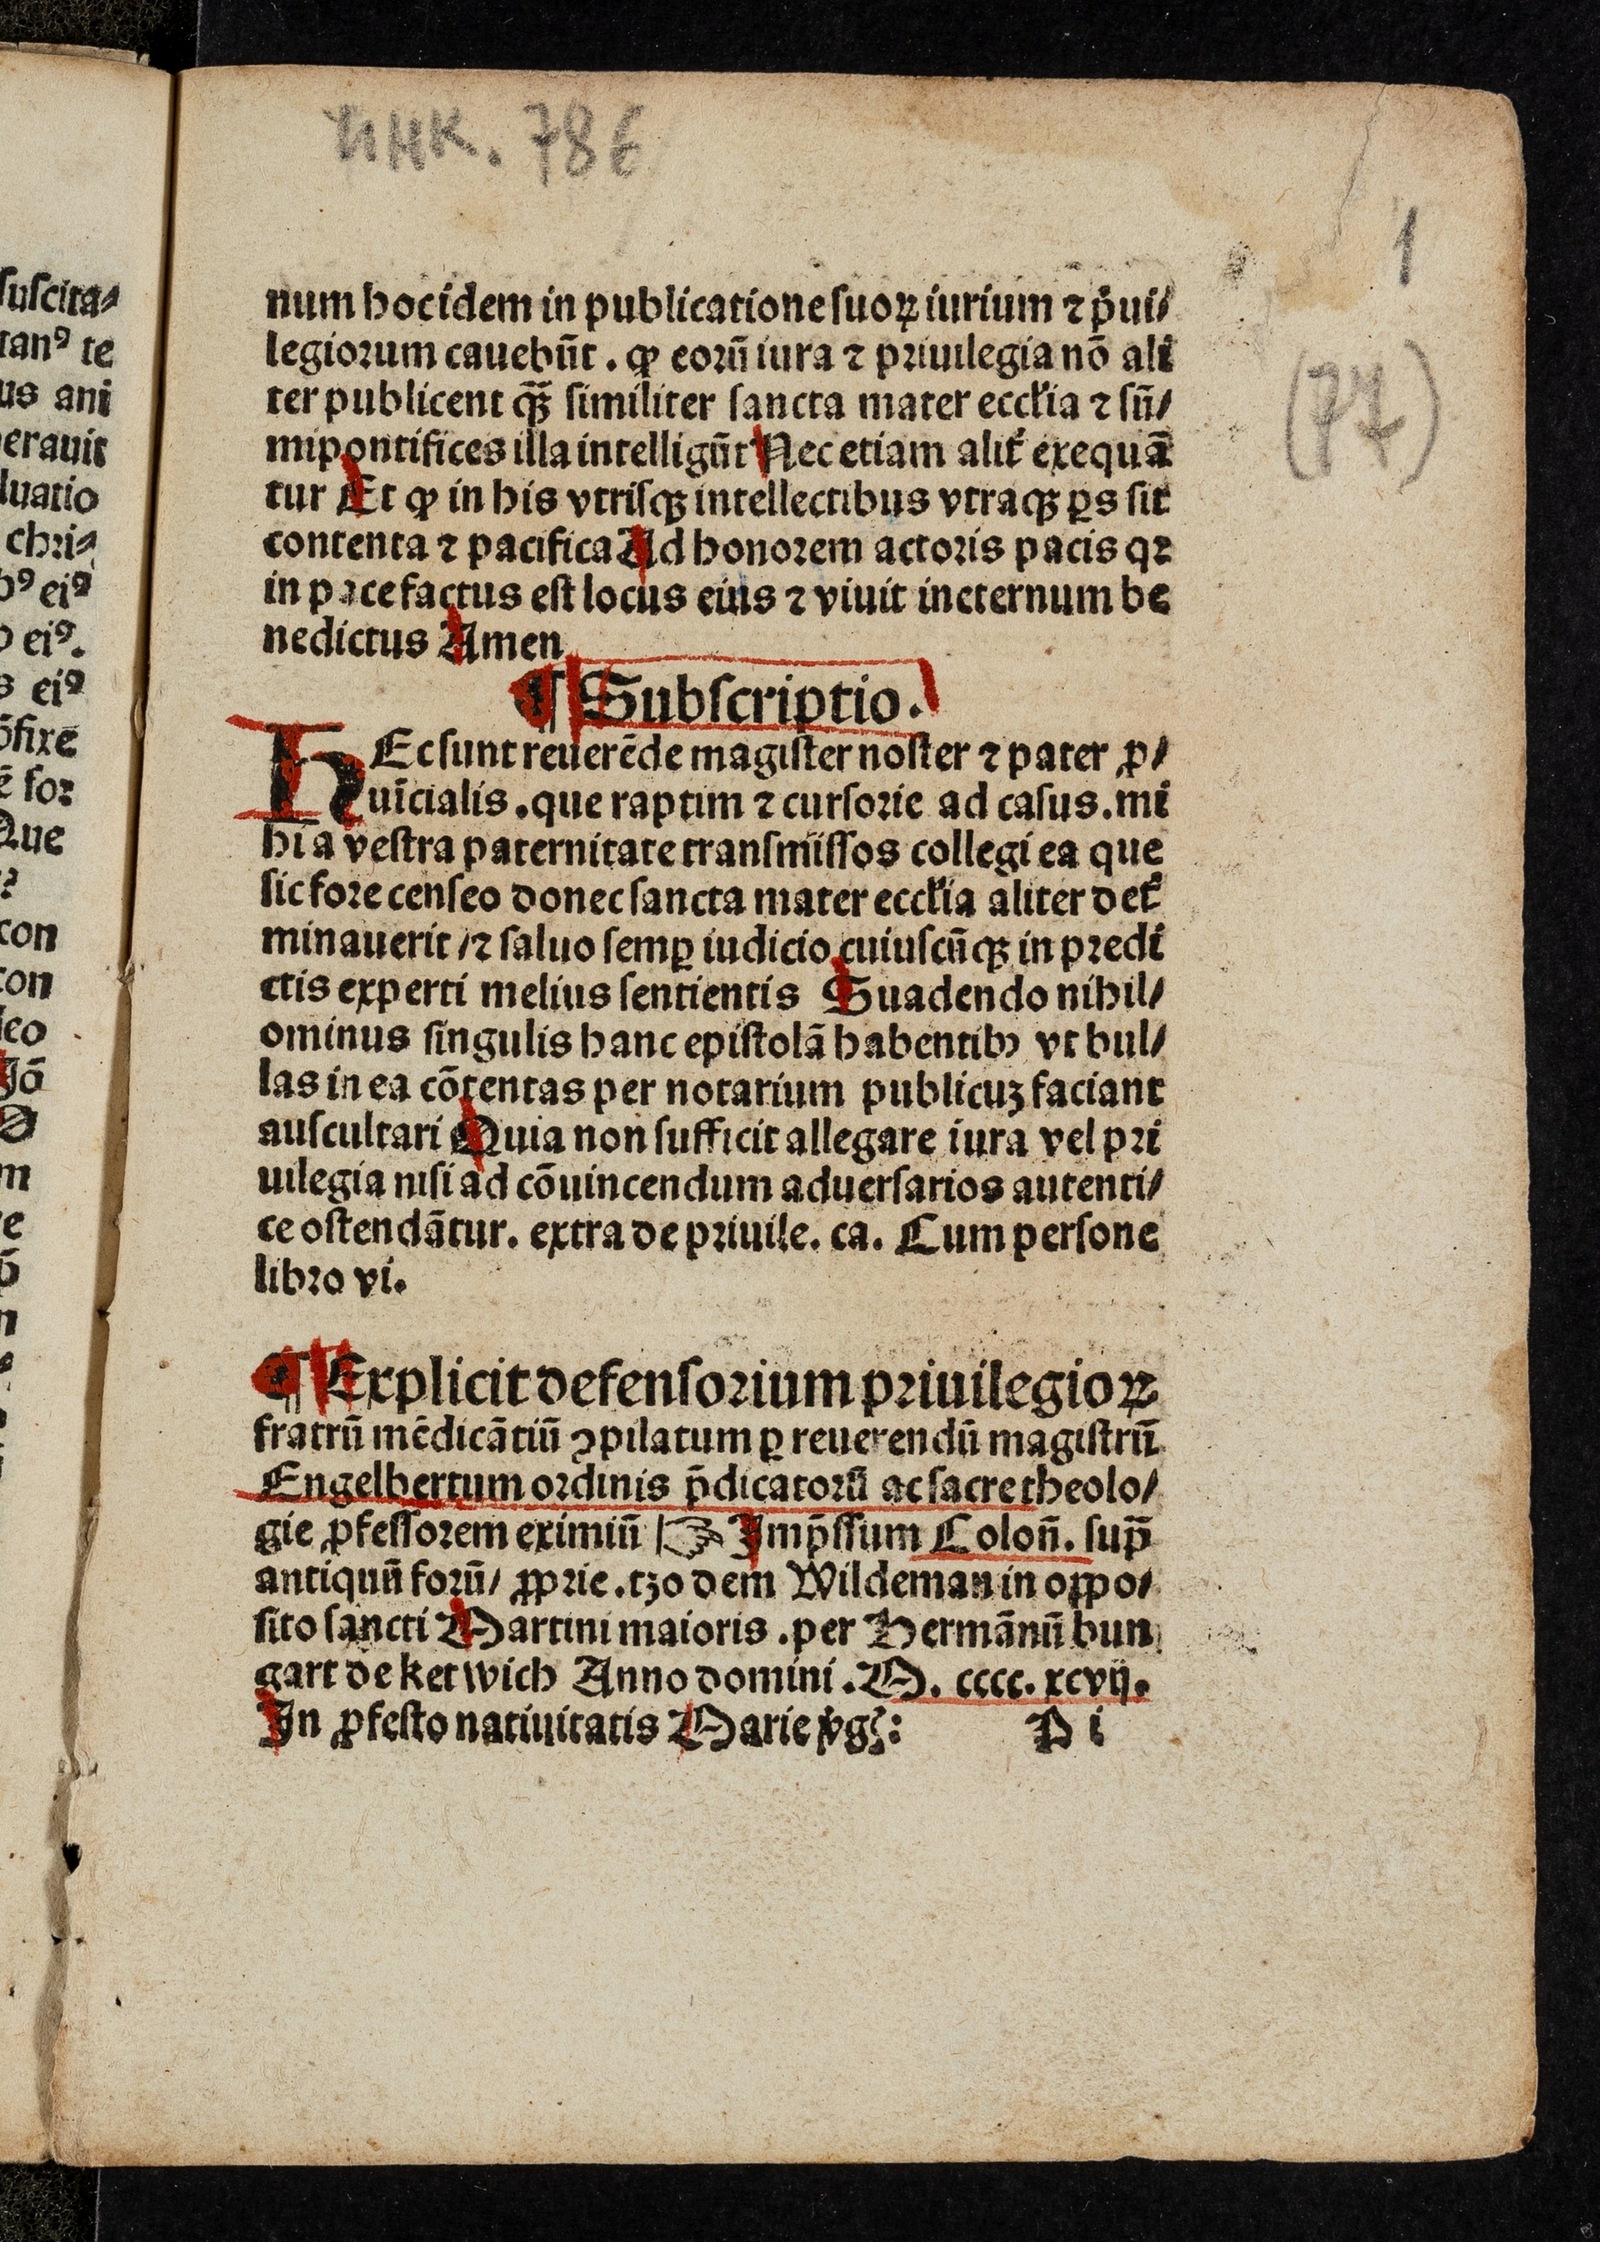 инк. 786
1
(77)
num hoc idem in publicatione suoꝝ iurium ⁊ p̃ui/
legiorum cauebūt . ꝙ eorū iura ⁊ priuilegia nō ali
ter publicent qꝫ̄ similiter sancta mater eccľia ⁊ sū/
mi pontifices illa intelligūt Nec etiam alit̃ exequā
tur Et ꝙ in his vtrisqꝫ intellectibus vtraqꝫ ꝑs sit
contenta ⁊ pacifica Ad honorem actoris pacis qꝛ
in pace factus est locus eius ⁊ viuit in eternum be
nedictus Amen
¶ Subscriptio.
HEc sunt reuerēde magister noster ⁊ pater ꝓ/
uīcialis . que raptim ⁊ cursorie ad casus . mi
hi a vestra paternitate transmissos collegi ea que
sic fore censeo donec sancta mater eccľia aliter det̃
minauerit /⁊ saluo semꝑ iudicio cuiuscūqꝫ in predi
ctis experti melius sentientis Suadendo nihil/
ominus singulis hanc epistolā habentibꝫ vt bul/
las in ea cōtentas per notarium publicuꝫ faciant
auscultari Quia non sufficit allegare iura vel pri
uilegia nisi ad cōuincendum aduersarios autenti/
ce ostendātur. extra de priuile. ca. Cum persone
libro vi.
¶ Explicit defensorium priuilegioꝝ
fratrū mēdicātiū ꝯpilatum ꝑ reuerendū magistrū
Engelbertum ordinis p̄dicatorū ac sacre theolo/
gie ꝓfessorem eximiū ☞ Imp̄ssum Coloñ. sup̄
antiquū forū/ ꝓprie . tzo dem Wildeman in oppo/
sito sancti Martini maioris . per Hermānū bun
gart de ketwich Anno domini . M. cccc. xcvij.
In ꝓfesto natiuitatis Marie v̓gꝭ: P i
suscita/
tanꝰ te
us ani
erauit
luatio
chri/
bꝰ eiꝰ
eiꝰ.
s eiꝰ
ōfixe
soꝛ
Que
con
con
leo
Jō
M
m